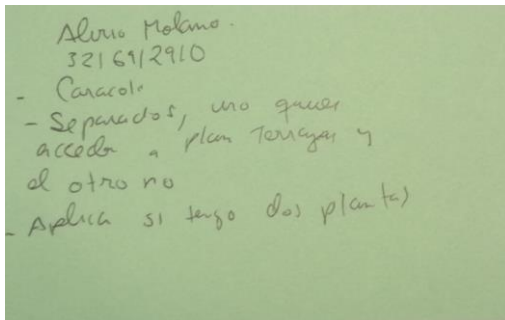 Molano.
3216912910
- Caracoli
- Separados, uno quiere
acceder a plan Terrazas y
el otro no
- Aplica si tengo dos plantas